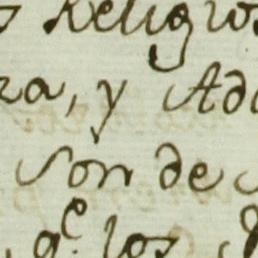 Religios
za, y Ado
son de
q.e los